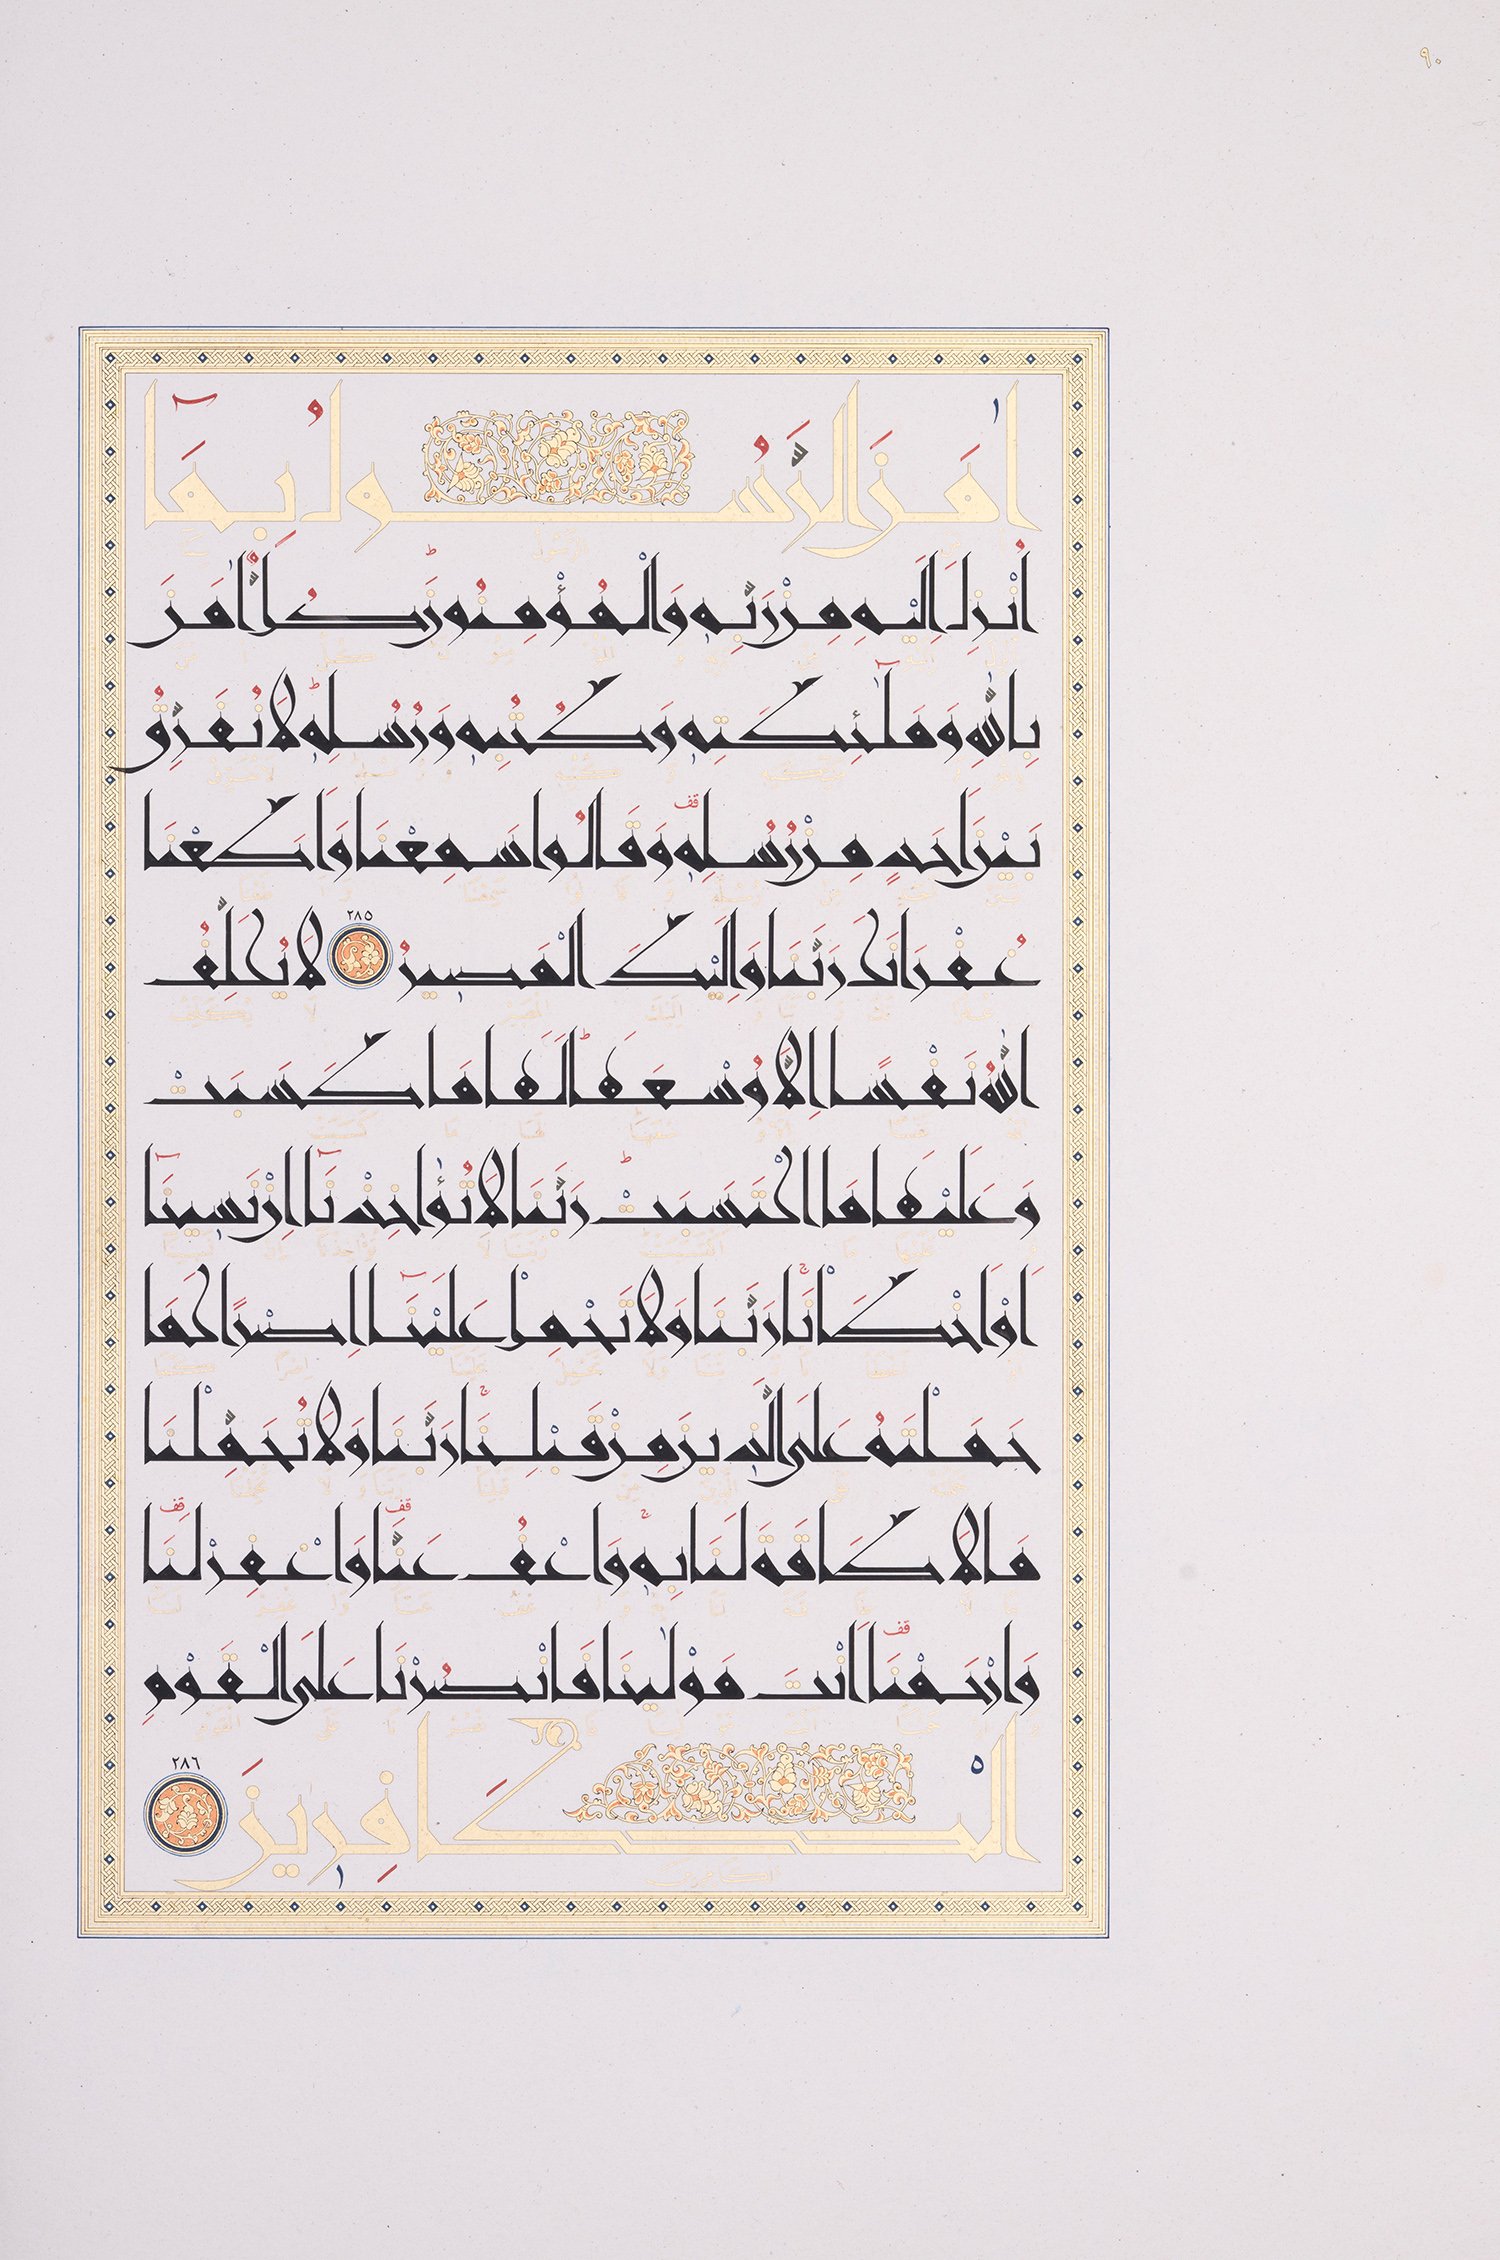 ٩٠
اٰمَنَ الرَّسُولُ بِمَٓا
اُنْزِلَ اِلَيْهِ مِنْ رَبِّهٖ وَالْمُؤْمِنُونَؕ كُلٌّ اٰمَنَ
بِاللّٰهِ وَمَلٰٓئِكَتِهٖ وَكُتُبِهٖ وَرُسُلِهٖؕ لَا نُفَرِّقُ
بَيْنَ اَحَدٍ مِنْ رُسُلِهٖ قف وَقَالُوا سَمِعْنَا وَاَطَعْنَا
غُفْرَانَكَ رَبَّنَا وَاِلَيْكَ الْمَصٖيرُ ٢٨٥ لَا يُكَلِّفُ
اللّٰهُ نَفْسًا اِلَّا وُسْعَهَاؕ لَهَا مَا كَسَبَتْ
وَعَلَيْهَا مَا اكْتَسَبَتْؕ رَبَّنَا لَا تُؤَاخِذْنَٓا اِنْ نَسٖينَٓا
اَوْ اَخْطَأْنَاۚ رَبَّنَا وَلَا تَحْمِلْ عَلَيْنَٓا اِصْرًا كَمَا
حَمَلْتَهُ عَلَى الَّذٖينَ مِنْ قَبْلِنَاۚ رَبَّنَا وَلَا تُحَمِّلْنَا
مَا لَا طَاقَةَ لَنَا بِهٖۚ وَاعْفُ عَنَّا قف وَاغْفِرْ لَنَا قف
وَارْحَمْنَا قف اَنْتَ مَوْلٰينَا فَانْصُرْنَا عَلَى الْقَوْمِ
الْكَافِرٖينَ ٢٨٦